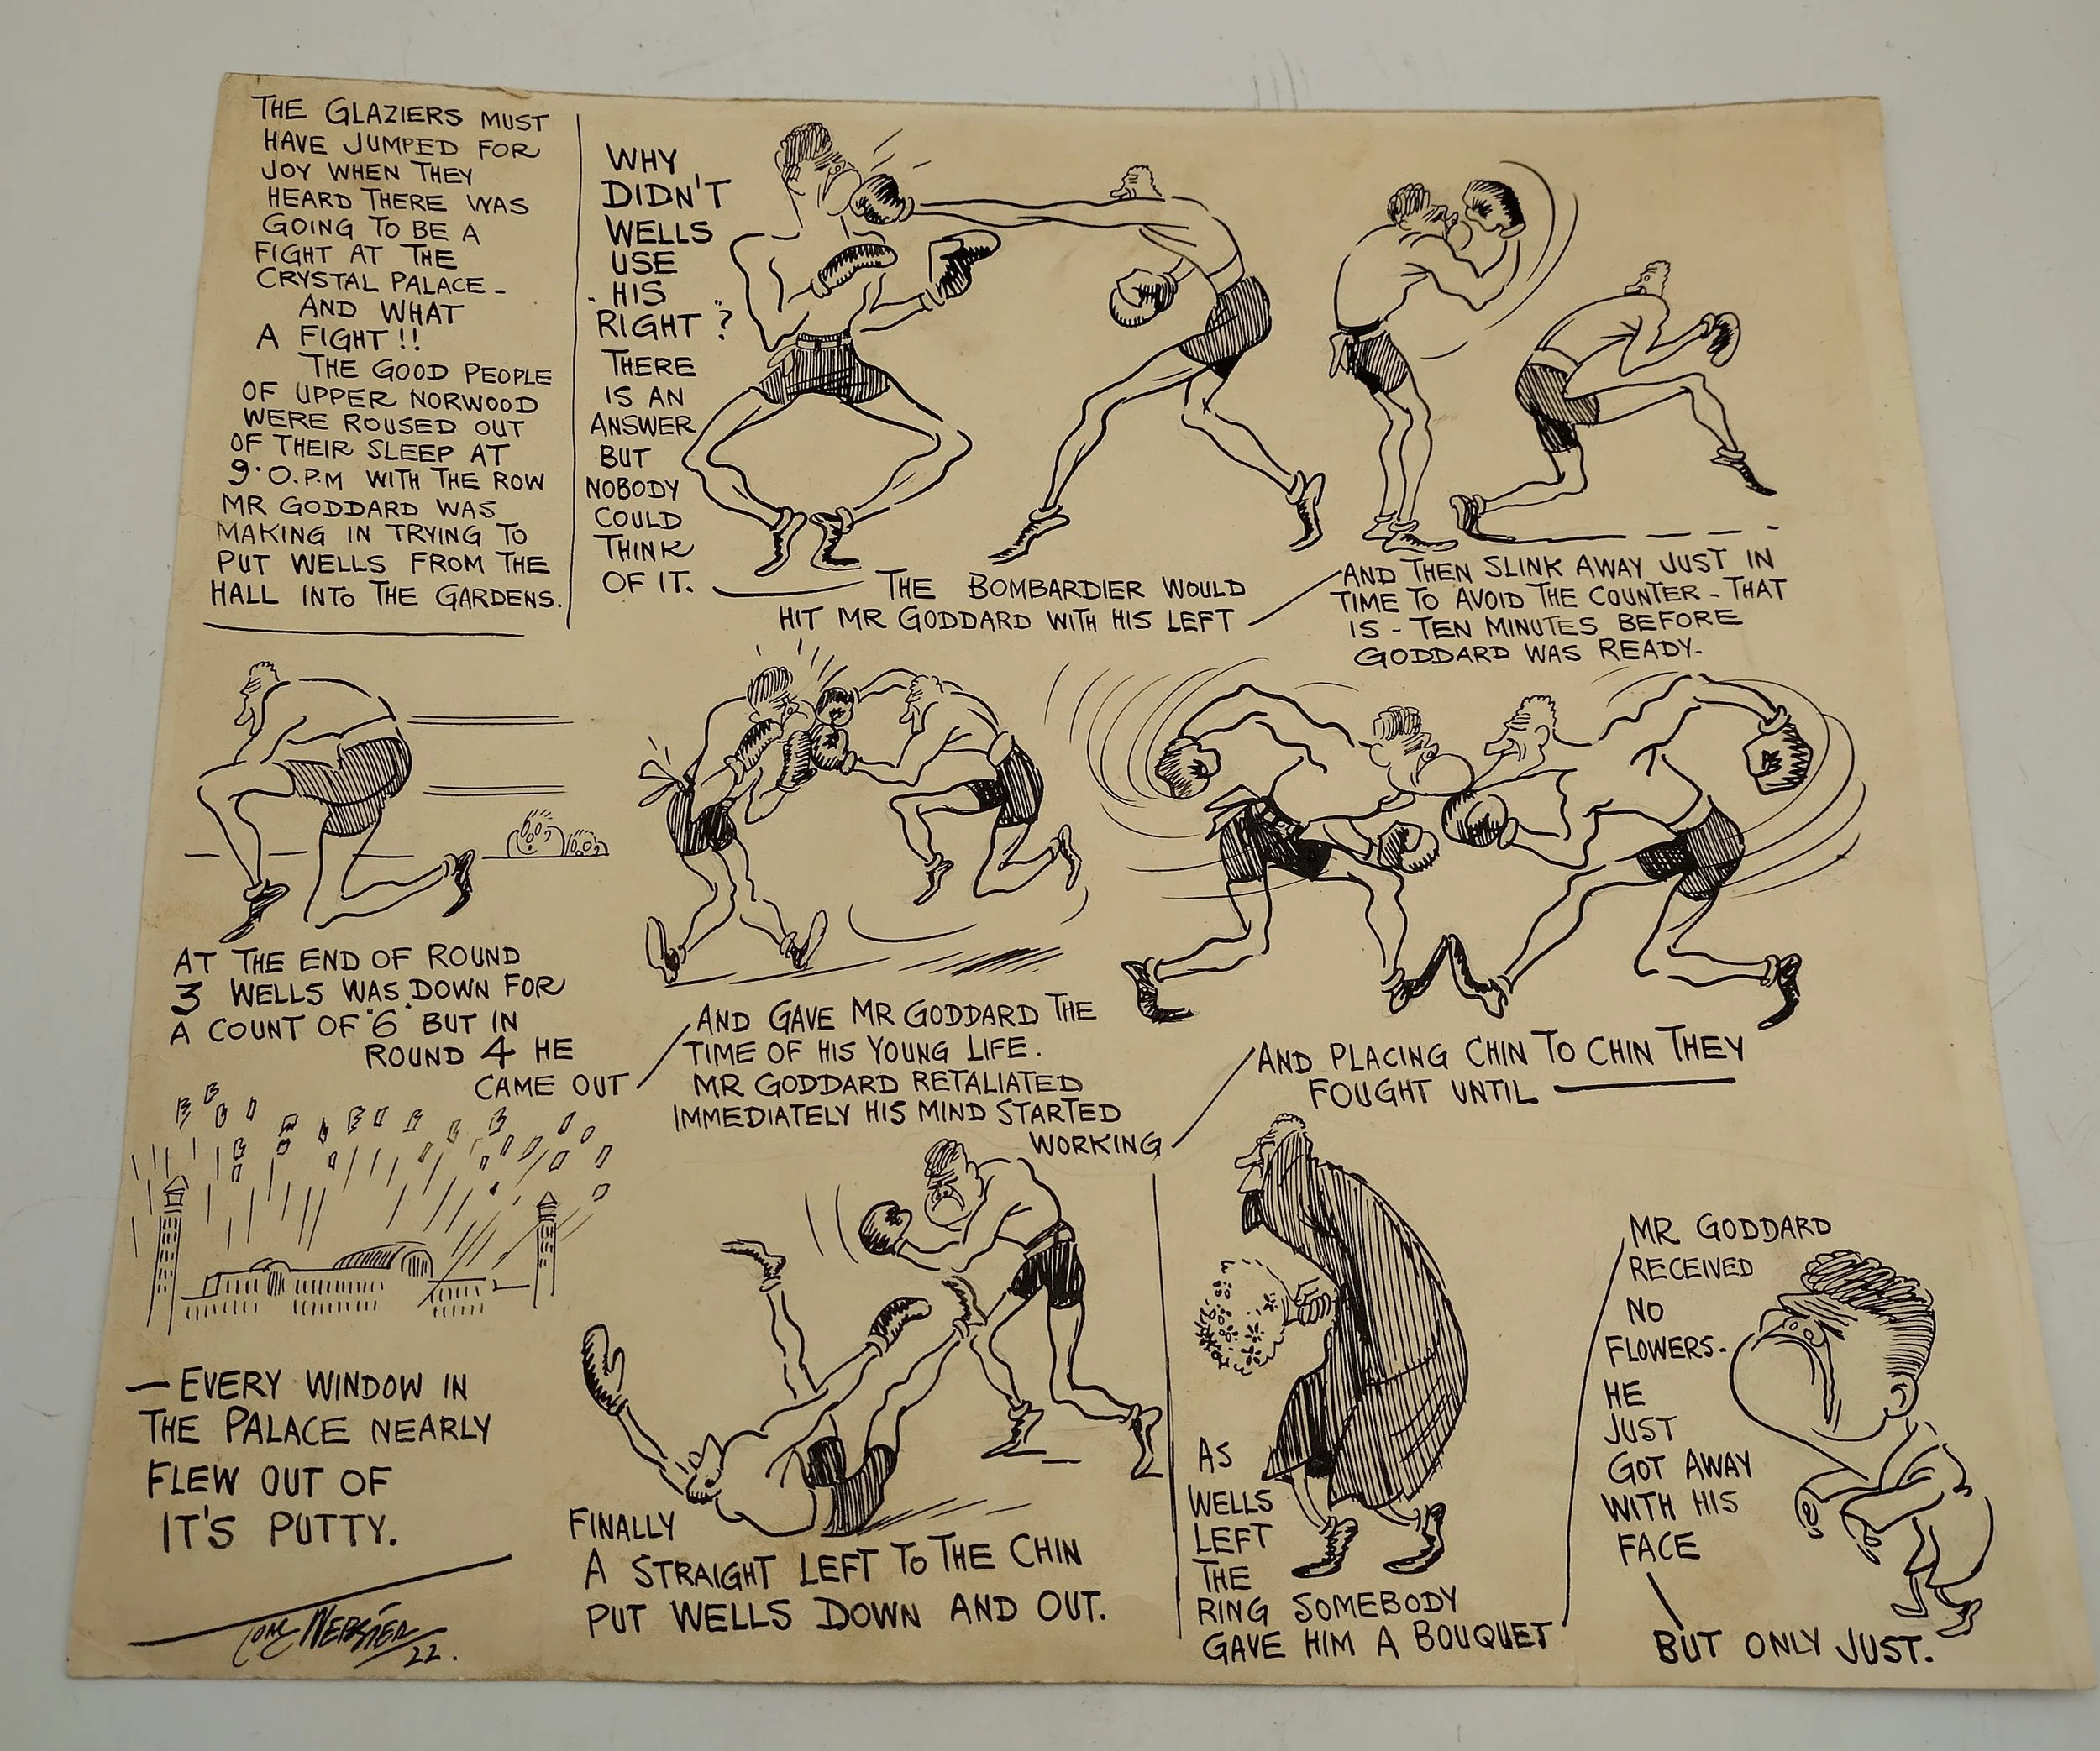 THE GLAZIERS MUST
HAVE JUMPED FOR
JOY WHEN THEY
HEARD THERE WAS
GOING TO BE A
FIGHT AT THE
CRYSTAL PALACE -
AND WHAT
A FIGHT!!
THE GOOD PEOPLE
OF UPPER NORWOOD
WERE ROUSED OUT
OF THEIR SLEEP AT
9.0.P.M WITH THE ROW
MR GODDARD WAS
MAKING IN TRYING TO
PUT WELLS FROM THE
HALL INTO THE GARDENS.
WHY
DIDN'T
WELLS
USE
HIS
RIGHT"?
THERE
IS AN
ANSWER
BUT
NOBODY
COULD
THINK
OF IT.
THE BOMBARDIER WOULD
HIT MR GODDARD WITH HIS LEFT
AND THEN SLINK AWAY JUST IN
TIME TO AVOID THE COUNTER - THAT
IS - TEN MINUTES BEFORE
GODDARD WAS READY-
AT THE END OF ROUND
3 WELLS WAS DOWN FOR
A COUNT OF "6" BUT IN
ROUND 4 HE
CAME OUT
AND GAVE MR GODDARD THE
TIME OF HIS YOUNG LIFE.
MR GODDARD RETALIATED
IMMEDIATELY HIS MIND STARTED
WORKING
AND PLACING CHIN TO CHIN THEY
FOUGHT UNTIL
— EVERY WINDOW IN
THE PALACE NEARLY
FLEW OUT OF
IT'S PUTTY.
TOM WEBSTER
22.
FINALLY
A STRAIGHT LEFT TO THE CHIN
PUT WELLS DOWN AND OUT.
AS
WELLS
LEFT
THE
RING SOMEBODY
GAVE HIM A BOUQUET
MR GODDARD
RECEIVED
NO
FLOWERS-
HE
JUST
GOT AWAY
WITH HIS
FACE
BUT ONLY JUST.